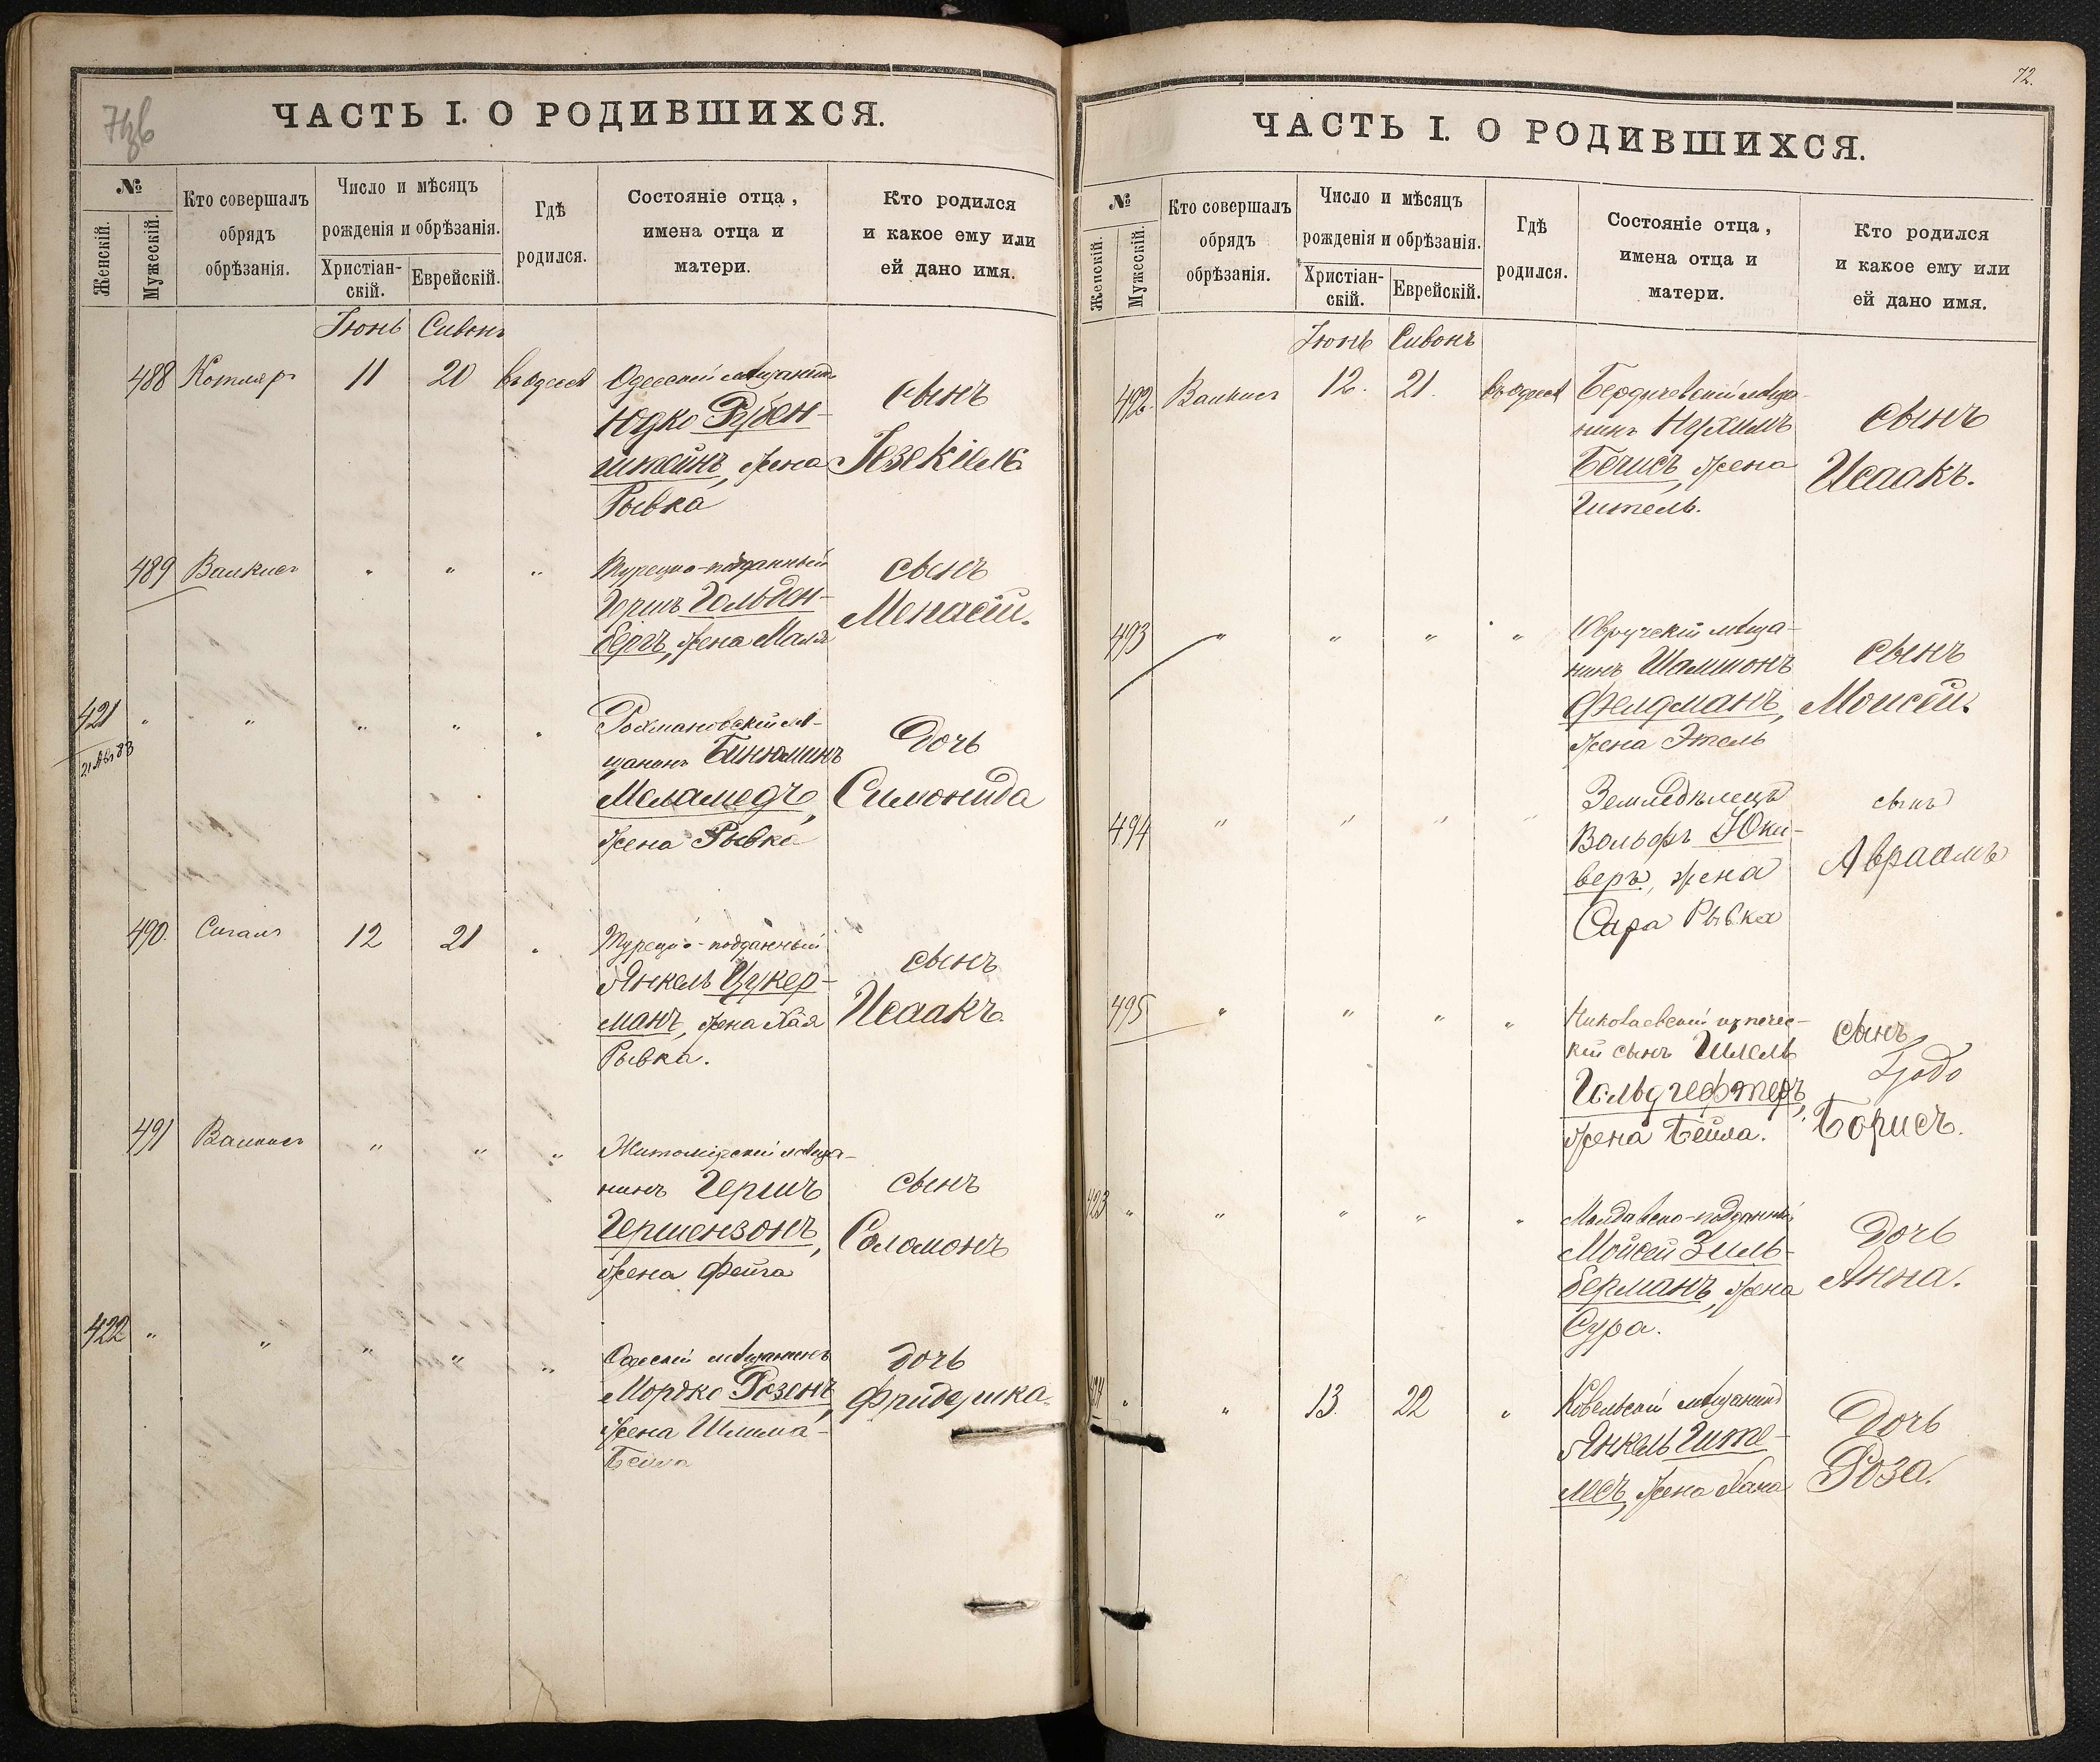 ЧАСТЬ I. О РОДИВШИХСЯ.
№
Женскій.
Мужескій.
Кто совершалъ
обрядъ
обрѣзанія.
Число и мѣсяцъ
рожденія и обрѣзанія.
Христіан-
скій.
Еврейскій.
Гдѣ
родился.
Состояніе отца,
имена отца и
матери.
Кто родился
и какое ему или
ей дано имя.
Іюнь Сивонъ
488 Котляръ 11 20 въ Одессѣ Одесскій мѣщанинъ
Юдко Рубен-
штейнъ, жена
Рывка
сынъ
Іезекіель
489 " " " Турецко-подданный
Гершъ Гольден-
бергъ, жена Маля
сынъ
Менасій.
421 " " " " "
21 Авг 83
мѣ-
щанинъ Бинюминъ
Меламедъ,
жена Рывка
Дочь
Симонида
490. Сигалъ 12 21 " Турецко-подданный
Янкель Цукер-
манъ, жена Хая
Рывка.
сынъ
Исаакъ.
491 " " " Житомірскій мѣща-
нинъ Гершъ
Гершензонъ,
жена Фейга
сынъ
Соломонъ
422 " " " " " Одесскій мѣщанинъ
Мордко Розенъ,
жена Шлима-
Бейла
дочь
72.
ЧАСТЬ I. О РОДИВШИХСЯ.
№
Женскій.
Мужескій.
Кто совершалъ
обрядъ
обрѣзанія.
Число и мѣсяцъ
рожденія и обрѣзанія.
Христіан-
скій.
Еврейскій.
Гдѣ
родился.
Состояніе отца,
имена отца и
матери.
Кто родился
и какое ему или
ей дано имя.
Іюнь Сивонъ
492. 12. 21. въ Одессѣ Бердичевскій мѣща-
нинъ Нухимъ
Бечисъ, жена
Гитель.
сынъ
Исаакъ.
493 " " " " Овручскій мѣща-
нинъ Шаммонъ
Фелдманъ,
жена Этель
сынъ
Моисей.
494 " " " " Земледѣлецъ
Вольфъ Юки-
веръ, жена
Сара Рывка
сынъ
Авраамъ
495 " " " " Николаевскій купечес-
кій сынъ Шлель
Гольдгефтеръ,
жена Бейла.
сынъ
Борисъ.
423 " " " " " Молдавско-подданный
Мойсей Зиль-
берманъ, жена
Сура.
Дочь
Анна.
424 " " 13. 22 " Ковельскій мѣщанинъ
Янкель Гите-
лисъ, жена Хана
Дочь
Роза.